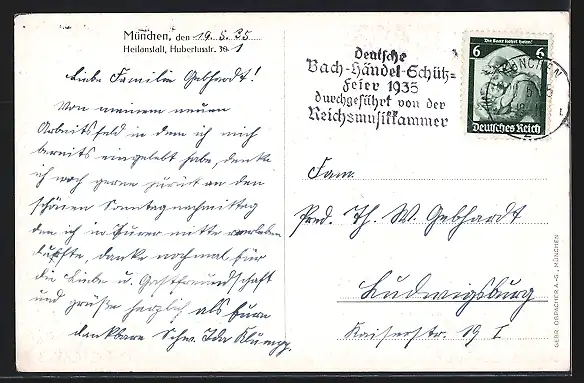 München, den 19.5.35
Heilanstalt, Hubertusstr. 1
Liebe Familie Gebhardt!
Von meinem neuen
Arbeitsfeld in dem ich mich
bereits eingelebt habe, denke
ich noch gerne zurück an den
schönen Sonntagnachmittag
den ich in Eurer Mitte verleben
durfte, danke nochmal für
die Liebe u. Gastfreundschaft
und grüße herzlich als Eure
dankbare Schw. Ida Klumpp.
Deutsche
Bach-Händel-Schütz-
Feier 1935
durchgeführt von der
Reichsmusikkammer
Die Saar kehrt heim!
6 6
Deutsches Reich
MÜNCHEN
Fam.
Pred. Th. W. Gebhardt
Ludwigsburg
Kaiserstr. 19 I
GEBR. OBPACHER A.-G., MÜNCHEN